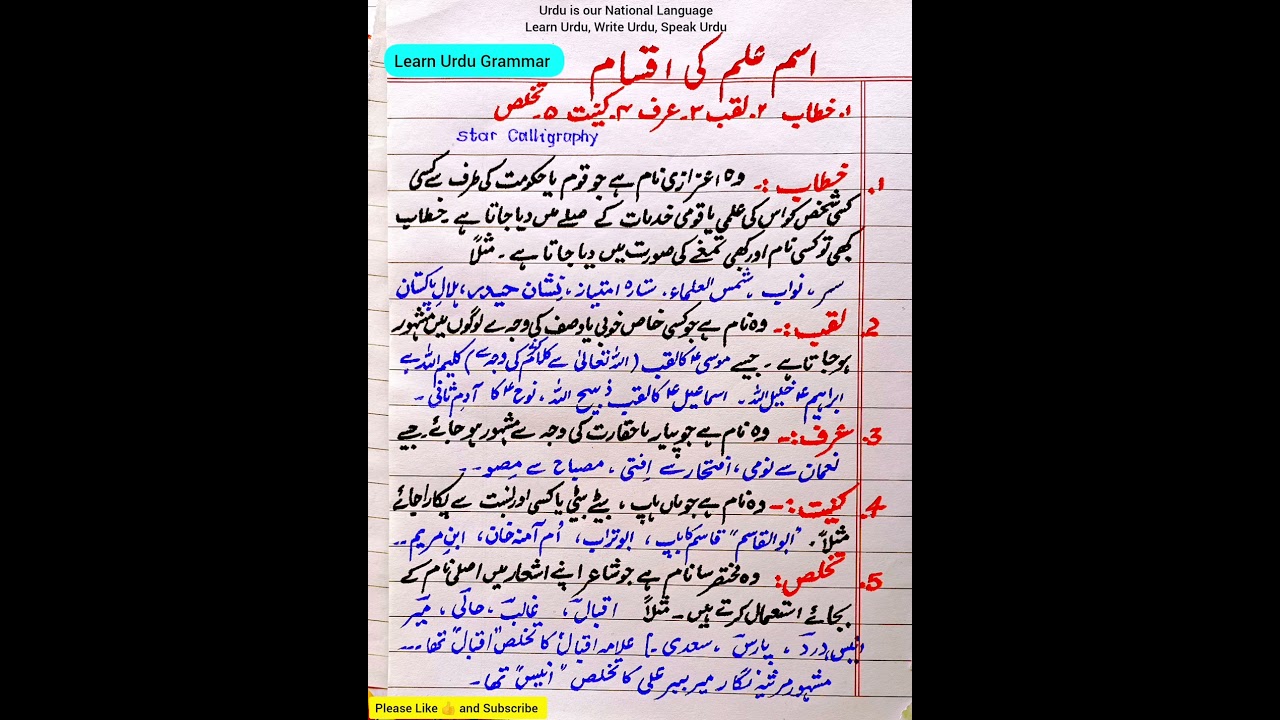 Urdu is our National Language
Learn Urdu, Write Urdu, Speak Urdu
Learn Urdu Grammar
اسم علم کی اقسام
۱. خطاب ۲. لقب ۳. عرف ۴. کنیت ۵. تخلص
star Calligraphy
۱. خطاب :۔ وہ اعزازی نام ہے جو قوم یا حکومت کی طرف سے کسی
کسی شخص کو اس کی علمی یا قومی خدمات کے صلے میں دیا جاتا ہے ۔ خطاب
کبھی تو کسی نام اور کبھی تمغے کی صورت میں دیا جاتا ہے ۔ مثلاً
سر ، نواب ، شمس العلماء ، ستارہ امتیاز ، نشان حیدر ، ہلال پاکستان
2. لقب :۔ وہ نام ہے جو کسی خاص خوبی یا وصف کی وجہ سے لوگوں میں مشہور
ہو جاتا ہے ۔ جیسے موسیٰ ؑ کا لقب (اللہ تعالیٰ سے کلام کی وجہ سے) کلیم اللہ ہے
ابراہیم ؑ خلیل اللہ ۔ اسماعیل ؑ کا لقب ذبیح اللہ ، نوح ؑ کا آدم ثانی ۔
3. عرف :۔ وہ نام ہے جو پیار یا حقارت کی وجہ سے مشہور ہو جائے ۔ جیسے
نعمان سے نومی ، افتخار سے اِفتی ، مصباح سے مِصو ۔۔
4. کنیت :۔ وہ نام ہے جو ماں باپ ، بیٹے بیٹی یا کسی اور نسبت سے پکارا جائے
مثلاً ۔ "ابوالقاسم" قاسم کا باپ ، ابوتراب ، اُم آمنہ خان ، ابنِ مریم ۔۔
5. تخلص : وہ مختصر سا نام ہے جو شاعر اپنے اشعار میں اصلی نام کے
بجائے استعمال کرتے ہیں ۔ مثلاً اقبالؔ ، غالبؔ ، حالیؔ ، میرؔ
انیس ، دردؔ ، پارسؔ ، سعدی ۔] علامہ اقبال کا تخلص "اقبال" تھا ۔۔۔
مشہور مرثیہ نگار میر ببر علی کا تخلص "انیس" تھا ۔
Please Like 👍 and Subscribe